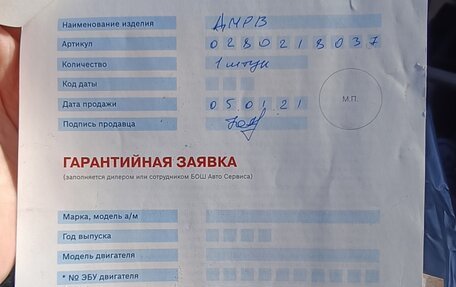 Наименование изделия ДМРВ
Артикул 0280218037
Количество 1 штук
Код даты
Дата продажи 050121
Подпись продавца
М.П.
ГАРАНТИЙНАЯ ЗАЯВКА
(заполняется дилером или сотрудником БОШ Авто Сервиса)
Марка, модель а/м
Год выпуска
Модель двигателя
* № ЭБУ двигателя